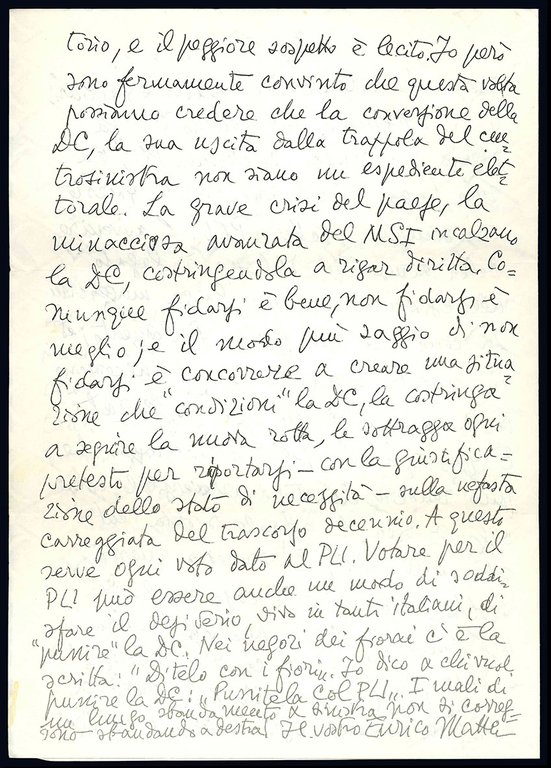 torio, e il peggiore sospetto è lecito. Io però
sono fermamente convinto che questa volta
possiamo credere che la conversione della
DC, la sua uscita dalla trappola del cen=
trosinistra non siano un espediente elet=
torale. La grave crisi del paese, la
minacciosa avanzata del MSI incalzano
la DC, costringendola a rigar diritta. Co=
munque fidarsi è bene, non fidarsi è
meglio; e il modo più saggio di non
fidarsi è concorrere a creare una situa=
zione che "condizioni" la DC, la costringa
a seguire la nuova rotta, le sottragga ogni
pretesto per riportarsi - con la giustifica=
zione dello stato di necessità - sulla nefasta
carreggiata del trascorso decennio. A questo
serve ogni voto dato al PLI. Votare per il
PLI può essere anche un modo di soddi=
sfare il desiderio, vivo in tanti italiani, di
"punire" la DC. Nei negozi dei fiorai c'è la
scritta: "Ditelo con i fiori". Io dico a chi vuol
punire la DC: "Punitela col PLI". I mali di
un lungo sbandamento a sinistra non si correg=
gono sbandando a destra. Il vostro Enrico Mattei